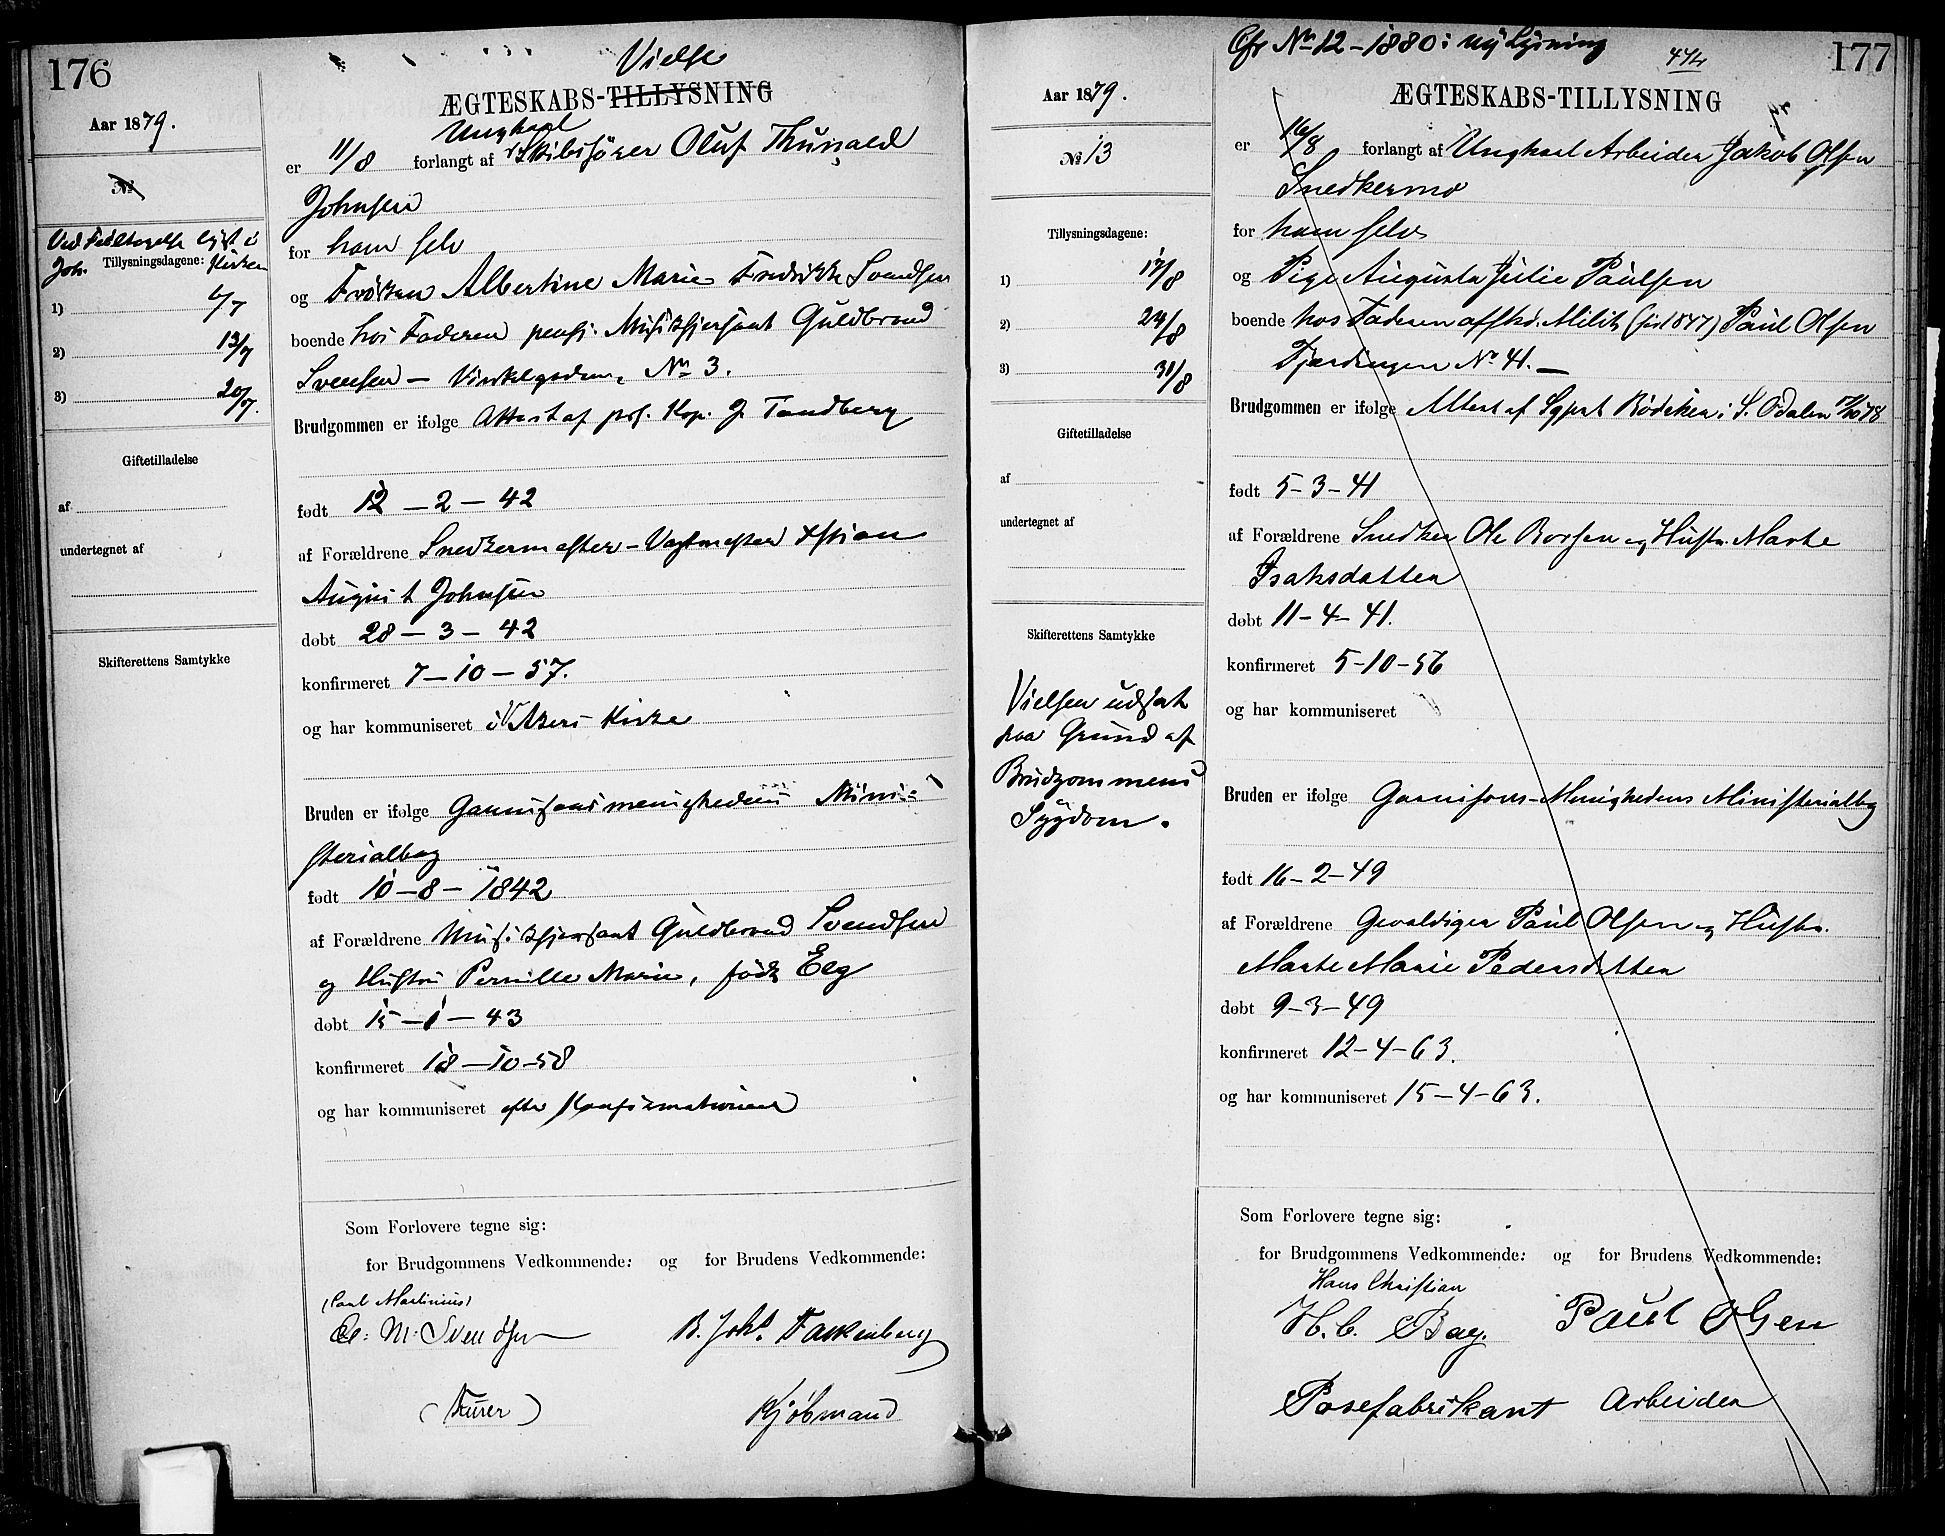 176
Vielse
ÆGTESKABS-TILLYSNING
Aar 1879.
No
Ungkarl
er 11/8 forlangt af Skibsfører Oluf Thurvald
Johnsen
Ved Feiltagelse lyst i
Joh. Tillysningsdagene: Kirken
for ham selv
og Frøken Albertine Marie Fredrikke Svendsen
1) 6/7
boende hos Faderen pens. Musiksjersant Guldbrand
2) 13/7
Svensen — Vinkelgaden, No 3.
3) 20/7.
Brudgommen er ifølge Attest af pers. Kap. J. Tandberg
Giftetilladelse
af
undertegnet af
født 12 – 2 – 42
af Forældrene Snedkermester – Vagtmester Kristian
August Johnsen
døbt 28 – 3 – 42
Skifterettens Samtykke
konfirmeret 7 – 10 – 57.
og har kommuniseret i V. Akers Kirke
Bruden er ifølge Garnisonsmenighedens Mini-
sterialbog
født 10 – 8 – 1842
af Forældrene Musiksjersant Guldbrand Svendsen
og Hustru Pernille Marie, født Elg
døbt 15 – 1 – 43
konfirmeret 18 – 10 – 58
og har kommuniseret efter Konfirmationen
Som Forlovere tegne sig:
for Brudgommens Vedkommende: og for Brudens Vedkommende:
(Carl Martinius)
C. M. Svendsen B. Johs. Falkenberg
(Furer) Kjøbmand
Cfr No 12 – 1880: ny Lysning
177
ÆGTESKABS-TILLYSNING
Aar 1879.
No 13
er 16/8 forlangt af Ungkarl Arbeider Jakob Olsen
Snedkermo
Tillysningsdagene:
for ham selv
1) 17/8
og Pige Augusta Julie Paulsen
2) 24/8
boende hos Faderen afsked. Milit. Paul Olsen
3) 31/8
Fjerdingen No 41. —
Brudgommen er ifølge Attest af Sgprt Rødiken i S. Odalen
Giftetilladelse
af
undertegnet af
født 5 – 3 – 41
af Forældrene Snedker Ole Borsen og Hustr. Marte
Isaksdatter
døbt 11 – 4 – 41.
Skifterettens Samtykke
konfirmeret 5 – 10 – 56
og har kommuniseret
Vielsen udsat
paa Grund af
Brudgommens
Sygdom.
Bruden er ifølge Garnisons-Menighedens Ministerialbog
født 16 – 2 – 49
af Forældrene Gevaldiger Paul Olsen og Hustr.
Marte Marie Pedersdatter
døbt 9 – 3 – 49
konfirmeret 12 – 4 – 63.
og har kommuniseret 15 – 4 – 63.
Som Forlovere tegne sig:
for Brudgommens Vedkommende: og for Brudens Vedkommende:
Hans Christian
H. C. Bay. Paul Olsen
Posefabrikant Arbeider